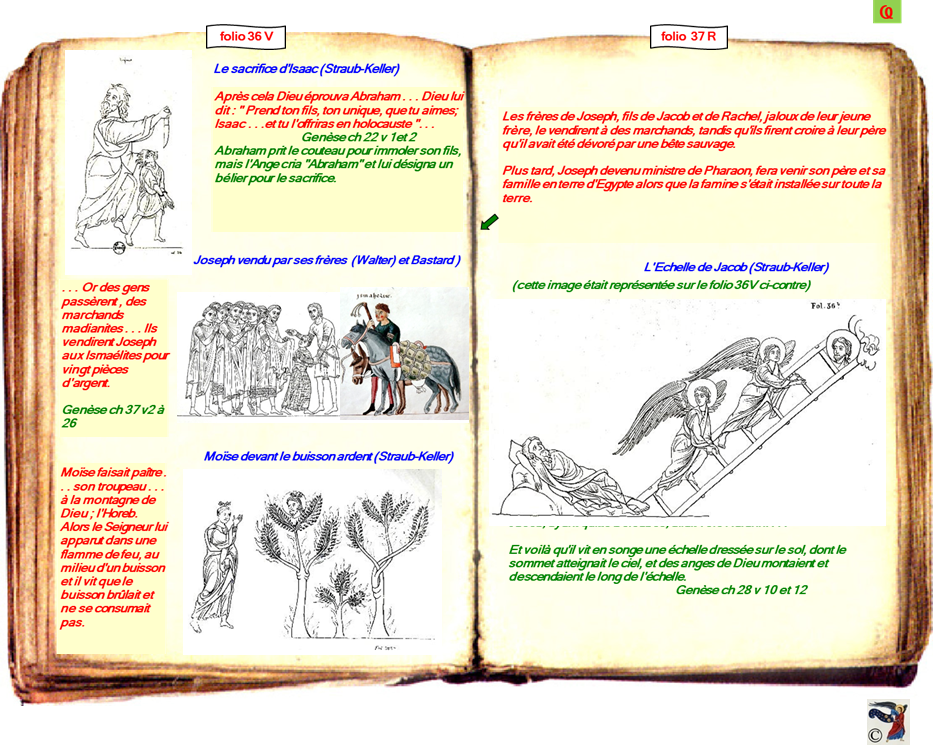 folio 36 V
Le sacrifice d'Isaac (Straub-Keller)
Après cela Dieu éprouva Abraham . . . Dieu lui
dit : " Prend ton fils, ton unique, que tu aimes;
Isaac . . . et tu l'offriras en holocauste " . . .
Genèse ch 22 v 1et 2
Abraham prit le couteau pour immoler son fils,
mais l'Ange cria "Abraham" et lui désigna un
bélier pour le sacrifice.
Joseph vendu par ses frères (Walter) et Bastard )
. . . Or des gens
passèrent , des
marchands
madianites . . . Ils
vendirent Joseph
aux Ismaélites pour
vingt pièces
d'argent.
Genèse ch 37 v2 à
26
Moïse devant le buisson ardent (Straub-Keller)
Moïse faisait paître .
. . son troupeau . . .
à la montagne de
Dieu ; l'Horeb.
Alors le Seigneur lui
apparut dans une
flamme de feu, au
milieu d'un buisson
et il vit que le
buisson brûlait et
ne se consumait
pas.
folio 37 R
Les frères de Joseph, fils de Jacob et de Rachel, jaloux de leur jeune
frère, le vendirent à des marchands, tandis qu'ils firent croire à leur père
qu'il avait été dévoré par une bête sauvage.
Plus tard, Joseph devenu ministre de Pharaon, fera venir son père et sa
famille en terre d'Egypte alors que la famine s'était installée sur toute la
terre.
L'Echelle de Jacob (Straub-Keller)
(cette image était représentée sur le folio 36V ci-contre)
Fol. 36
Et voilà qu'il vit en songe une échelle dressée sur le sol, dont le
sommet atteignait le ciel, et des anges de Dieu montaient et
descendaient le long de l'échelle.
Genèse ch 28 v 10 et 12
©